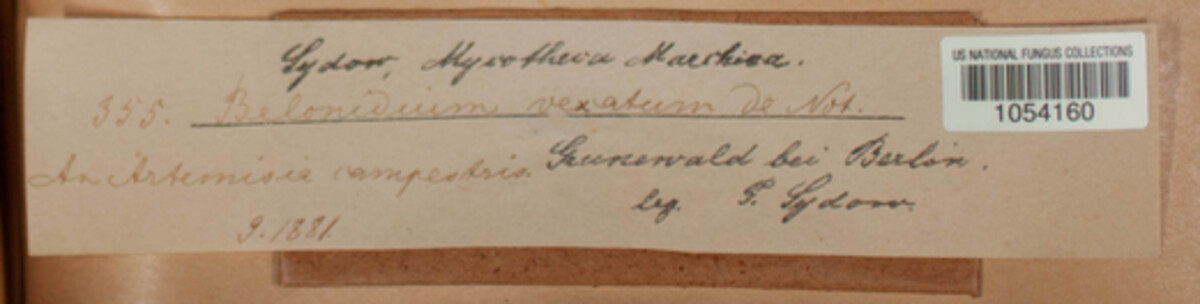 Sydow, Mycotheca Marchica.
US NATIONAL FUNGUS COLLECTIONS
1054160
355. Belonidium vexatum de Not.
An Artemisia campestris. Grunewald bei Berlin.
leg. P. Sydow.
9.1881.